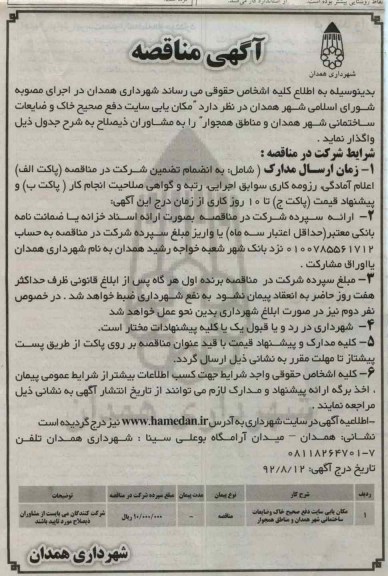 آگهی مناقصه
شهرداری همدان
بدینوسیله به اطلاع کلیه اشخاص حقوقی می رساند شهرداری همدان در اجرای مصوبه
شورای اسلامی شهر همدان در نظر دارد "مکان یابی سایت دفع صحیح خاک و ضایعات
ساختمانی شهر همدان و مناطق همجوار" را به مشاوران ذیصلاح به شرح جدول ذیل
واگذار نماید .
شرایط شرکت در مناقصه :
۱- زمان ارسال مدارک ( شامل: به انضمام تضمین شرکت در مناقصه (پاکت الف)
اعلام آمادگی، رزومه کاری سوابق اجرایی، رتبه و گواهی صلاحیت انجام کار ( پاکت ب) و
پیشنهاد قیمت (پاکت ج) تا ۱۰ روز کاری از زمان درج این آگهی:
۲- ارائه سپرده شرکت در مناقصه بصورت ارائه اسناد خزانه یا ضمانت نامه
بانکی معتبر(حداقل اعتبار سه ماه) یا واریز مبلغ سپرده شرکت در مناقصه به حساب
۰۱۰۰۷۸۵۵۶۱۷۱۲ نزد بانک شهر شعبه خواجه رشید همدان به نام شهرداری همدان
یااوراق مشارکت .
۳- مبلغ سپرده شرکت در مناقصه برنده اول هر گاه پس از ابلاغ قانونی ظرف حداکثر
هفت روز حاضر به انعقاد پیمان نشود به نفع شهرداری ضبط خواهد شد . در خصوص
نفر دوم نیز در صورت ابلاغ شهرداری بدین نحو عمل خواهد شد
۴- شهرداری در رد و یا قبول یک یا کلیه پیشنهادات مختار است.
۵- کلیه مدارک و پیشنهاد قیمت با قید عنوان مناقصه بر روی پاکت از طریق پست
پیشتاز تا مهلت مقرر به نشانی ذیل ارسال گردد.
۶- کلیه اشخاص حقوقی واجد شرایط جهت کسب اطلاعات بیشتر از شرایط عمومی پیمان
، اخذ برگه ارائه پیشنهاد و مدارک لازم می توانند از تاریخ انتشار آگهی به نشانی ذیل
مراجعه نمایند .
-اطلاعیه آگهی در سایت شهرداری به آدرس www.hamedan.ir نیز درج گردیده است
نشانی: همدان – میدان آرامگاه بوعلی سینا : شهرداری همدان تلفن
۰۸۱۱۸۲۶۴۷۰۱-۷
تاریخ درج آگهی: ۹۲/۸/۱۲
ردیف شرح کار نوع پیمان مدت پیمان مبلغ سپرده شرکت در مناقصه توضیحات
۱ مکان یابی سایت دفع صحیح خاک وضایعات ساختمانی شهر همدان و مناطق همجوار مناقصه - ۱۰/۰۰۰/۰۰۰ ریال شرکت کنندگان می بایست از مشاوران ذیصلاح مورد تایید باشند
شهرداری همدان